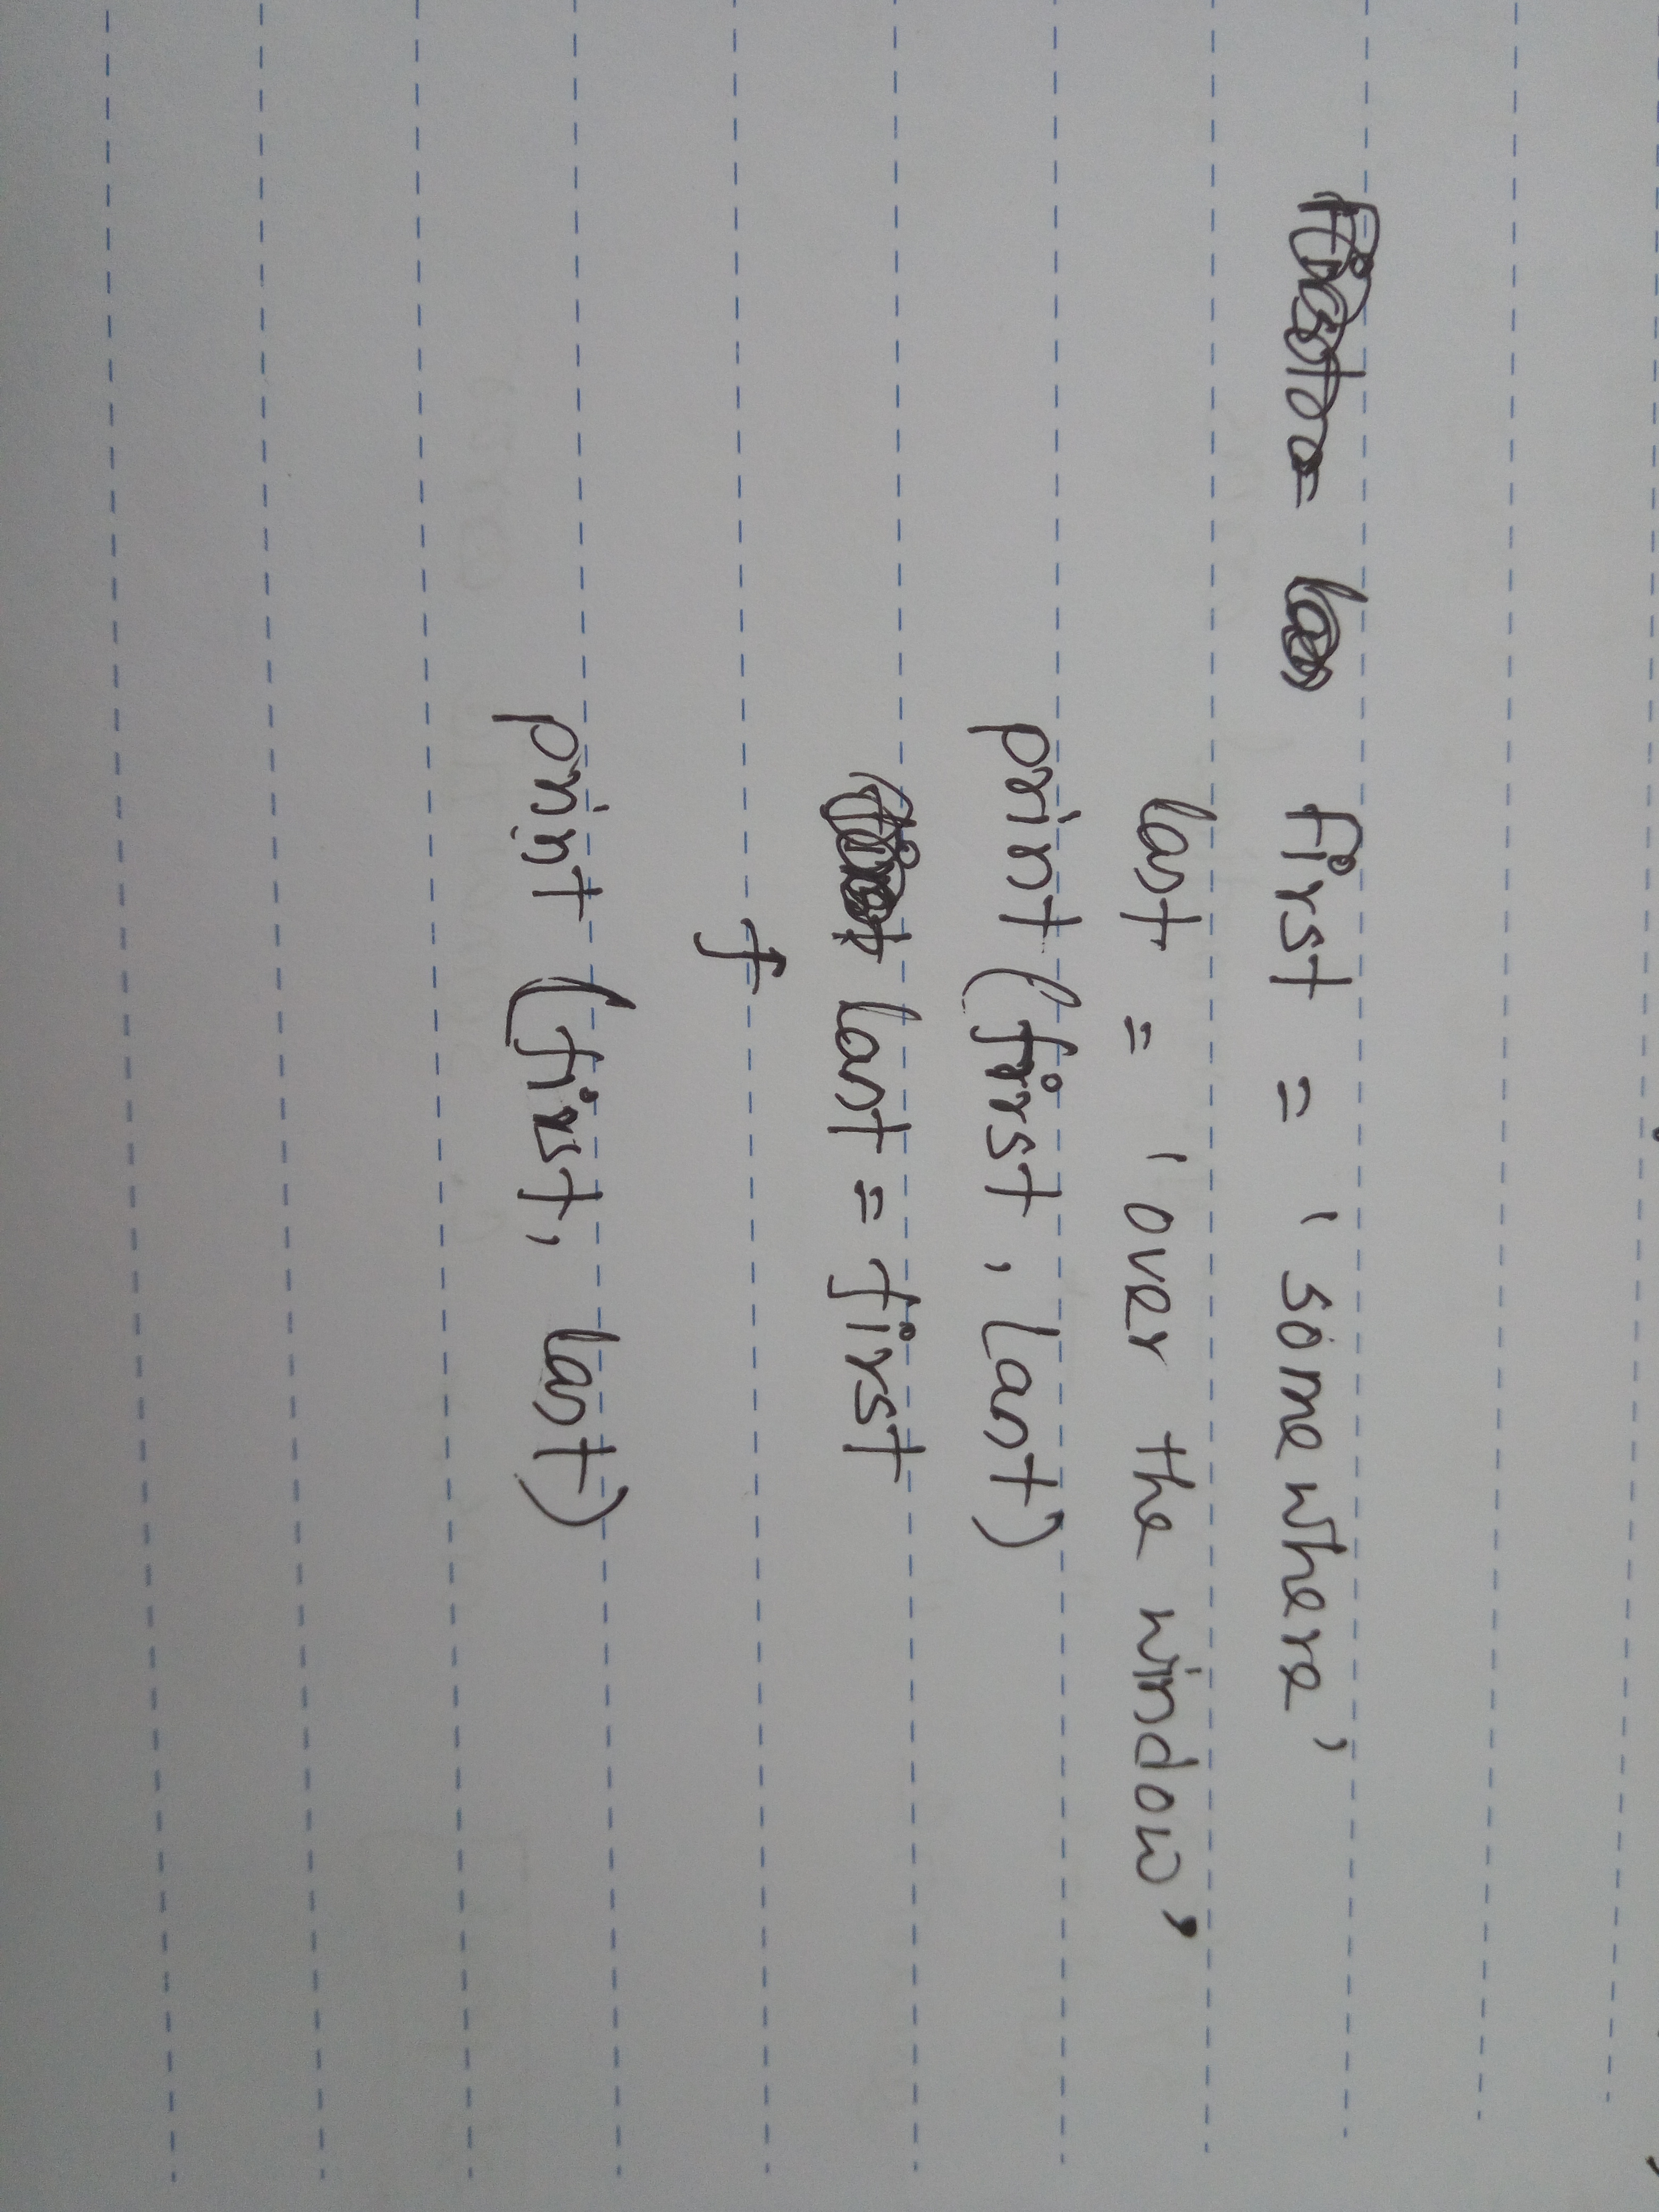 first = 'somewhere'
last = 'over the window'
print(first, last)
last = first
f
print (first, last)